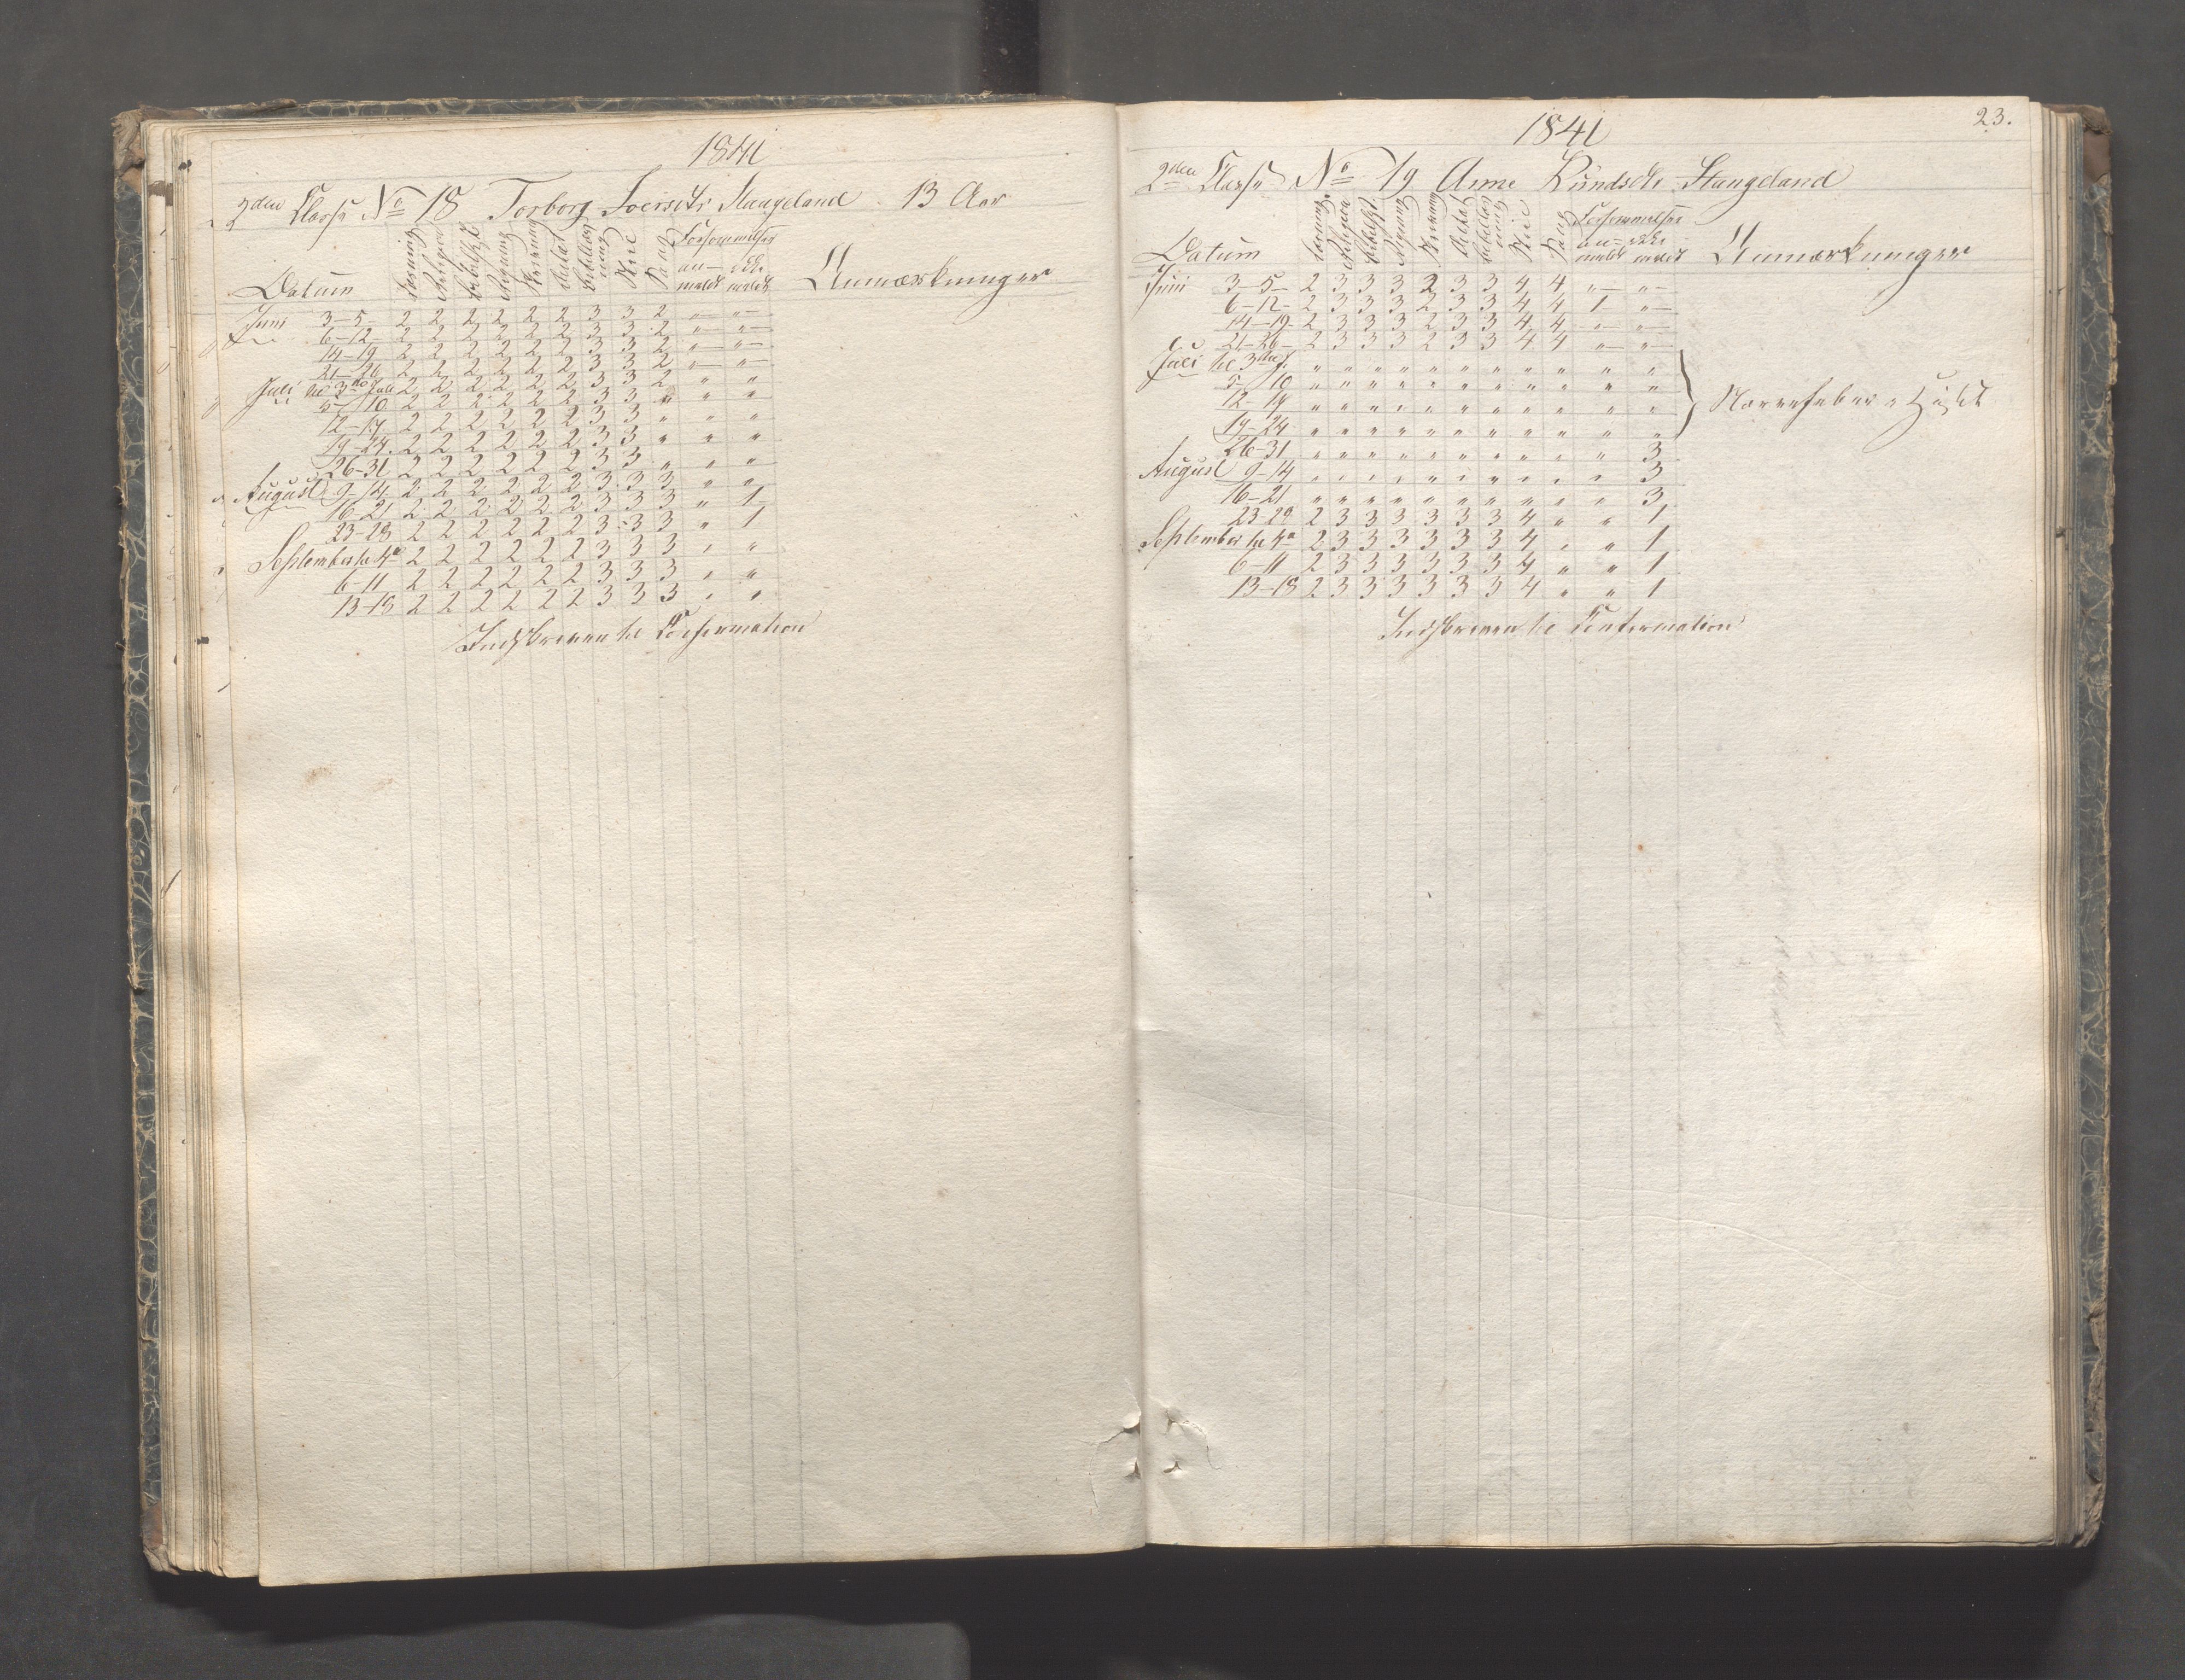 1841
2den Classe No 18 Torborg Stangeland 13 Aar
Datum Læsning Religion Regning Skrivning Flid Sang Forsømmelser an- meldt ikke meldt Anmærkninger
Juni 3-5 2 2 2 2 2 2 3 3 2 " "
6-12 2 2 2 2 2 2 3 3 2 " "
14-19 2 2 2 2 2 2 3 3 2 " "
21-26 2 2 2 2 2 2 3 3 2 " "
Juli til 3die Juli 2 2 2 2 2 2 3 3 2 " "
5-10 2 2 2 2 2 2 3 3 " " "
12-17 2 2 2 2 2 2 3 3 " " "
19-24 2 2 2 2 2 2 3 3 " " "
26-31 2 2 2 2 2 2 3 3 " " "
August 9-14 2 2 2 2 2 2 3 3 3 " "
16-21 2 2 2 2 2 2 3 3 3 " 1
23-28 2 2 2 2 2 2 3 3 3 " 1
September til 4de 2 2 2 2 2 2 3 3 3 " "
6-11 2 2 2 2 2 2 3 3 3 " "
13-18 2 2 2 2 2 2 3 3 3 " "
Indskreven til Confirmation
23.
1841
2den Classe No 19 Anne Stangeland
Datum Læsning Religion Regning Skrivning Flid Sang Forsømmelser an- meldt ikke meldt Anmærkninger
Juni 3-5 2 3 3 3 2 3 3 4 4 " "
6-12 2 3 3 3 2 3 3 4 4 1 "
14-19 2 3 3 3 2 3 3 4 4 " "
21-26 2 3 3 3 2 3 3 4 4 " "
Juli til 3die J. " " " " " " " " " " "
5-10 " " " " " " " " " " "
12-17 " " " " " " " " " " " Nervefeber i Huset
19-24 " " " " " " " " " " "
26-31 " " " " " " " " " " 3
August 9-14 " " " " " " " " " " 3
16-21 " " " " " " " " " " 3
23-28 2 3 3 3 3 3 3 4 " " 1
September til 4de 2 3 3 3 3 3 3 4 " " 1
6-11 2 3 3 3 3 3 3 4 " " 1
13-18 2 3 3 3 3 3 3 4 " " 1
Indskreven til Confirmation